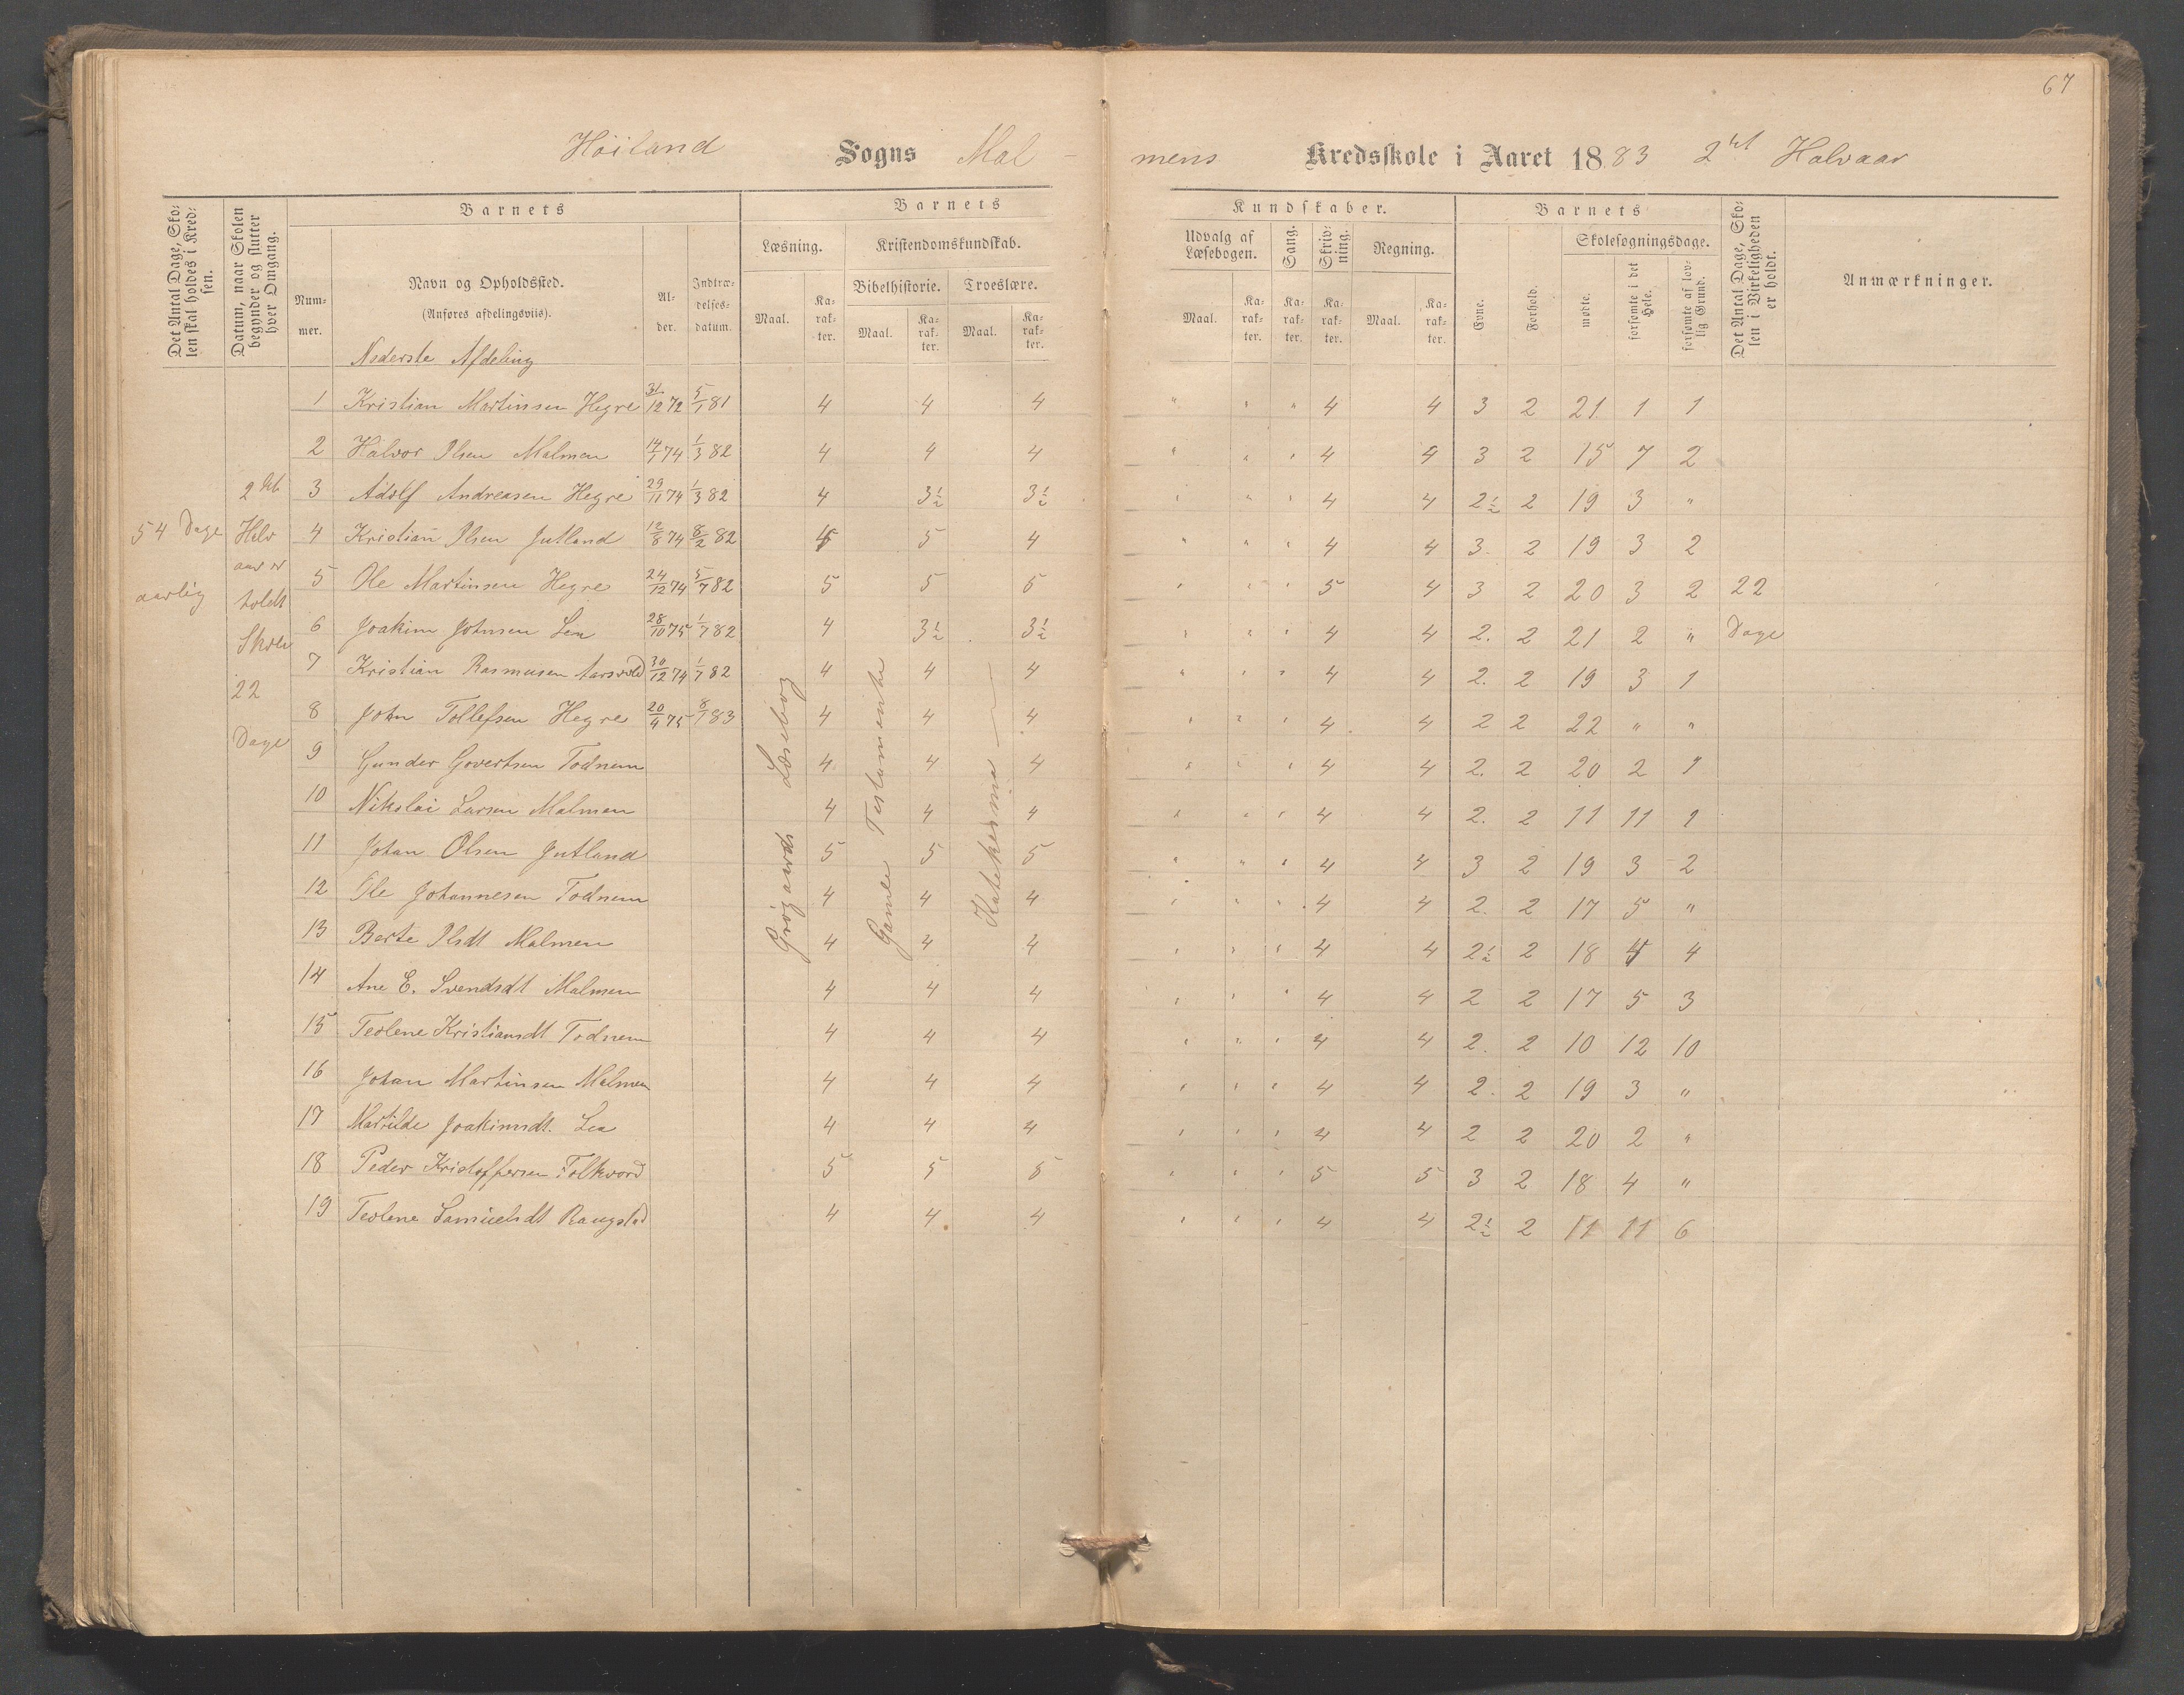 67
Höiland Sogns Mal- mens Kredsskole i Aaret 1883 2det Halvaar
Det Antal Dage, Skolen skal holdes i Kredsen.
Datum, naar Skolen begynder og slutter hver Omgang.
Barnets
Nummer.
Navn og Opholdssted.
(Anføres afdelingsviis).
Alder.
Indtrædelsesdatum.
Barnets Kundskaber.
Læsning.
Kristendomskundskab.
Bibelhistorie. Troeslære.
Maal. Karakter. Maal. Karakter. Maal. Karakter.
Udvalg af Læsebogen. Sang. Skrivning. Regning.
Maal. Karakter. Karakter. Karakter. Maal. Karakter.
Barnets
Evne. Forhold.
Skolesøgningsdage.
mødte. forsømte i det Hele. forsømte af lovlig Grund.
Det Antal Dage, Skolen i Virkeligheden er holdt.
Anmærkninger.
Nederste Afdeling
54 Dage aarlig
2det Halvaar er holdt Skole 22 Dage
Grögaards Læsebog
Gamle Testamente
Katekesmia
1 Kristian Martinsen Hegre 31/12 72 5/1 81 4 4 4 " " " 4 4 3 2 21 1 1
2 Halvor Olsen Malmen 14/1 74 1/3 82 4 4 4 " " " 4 4 3 2 15 7 2
3 Adolf Andreasen Hegre 29/11 74 1/3 82 4 3½ 3½ " " " 4 4 2½ 2 19 3 "
4 Kristian Olsen Jutland 12/8 74 8/2 82 5 4 " " " 4 4 3 2 19 3 2
5 Ole Martinsen Hegre 24/12 74 5/7 82 5 5 5 " " " 5 4 3 2 20 3 2 22 Dage
6 Joakim Johnsen Lea 28/10 75 1/7 82 4 3½ 3½ " " " 4 4 2. 2 21 2 "
7 Kristian Rasmusen Aarsvold 30/12 74 1/7 82 4 4 4 " " " 4 4 2. 2 19 3 1
8 John Tollefsen Hegre 20/4 75 8/1 83 4 4 4 " " " 4 4 2 2 22 " "
9 Gunder Govertsen Todnem 4 4 4 " " " 4 4 2. 2 20 2 1
10 Nikolai Larsen Malmen 4 4 4 " " " 4 4 2. 2 11 11 1
11 Johan Olsen Jutland 5 5 5 " " " 4 4 3 2 19 3 2
12 Ole Johannesen Todnem 4 4 4 " " " 4 4 2. 2 17 5 "
13 Berte Olsdt Malmen 4 4 4 " " " 4 4 2½ 2 18 4 4
14 Ane E. Svendsdt Malmen 4 4 4 " " " 4 4 2 2 17 5 3
15 Teolene Kristiansdt Todnem 4 4 4 " " " 4 4 2. 2 10 12 10
16 Johan Martinsen Malmen 4 4 4 " " " 4 4 2. 2 19 3 "
17 Matilde Joakimsdt. Lea 4 4 4 " " " 4 4 2 2 20 2 "
18 Peder Kristoffersen Folkvord 5 5 5 " " " 5 5 3 2 18 4 "
19 Teolene Samuelsdt Raugstad 4 4 4 " " " 4 4 2½ 2 11 11 6